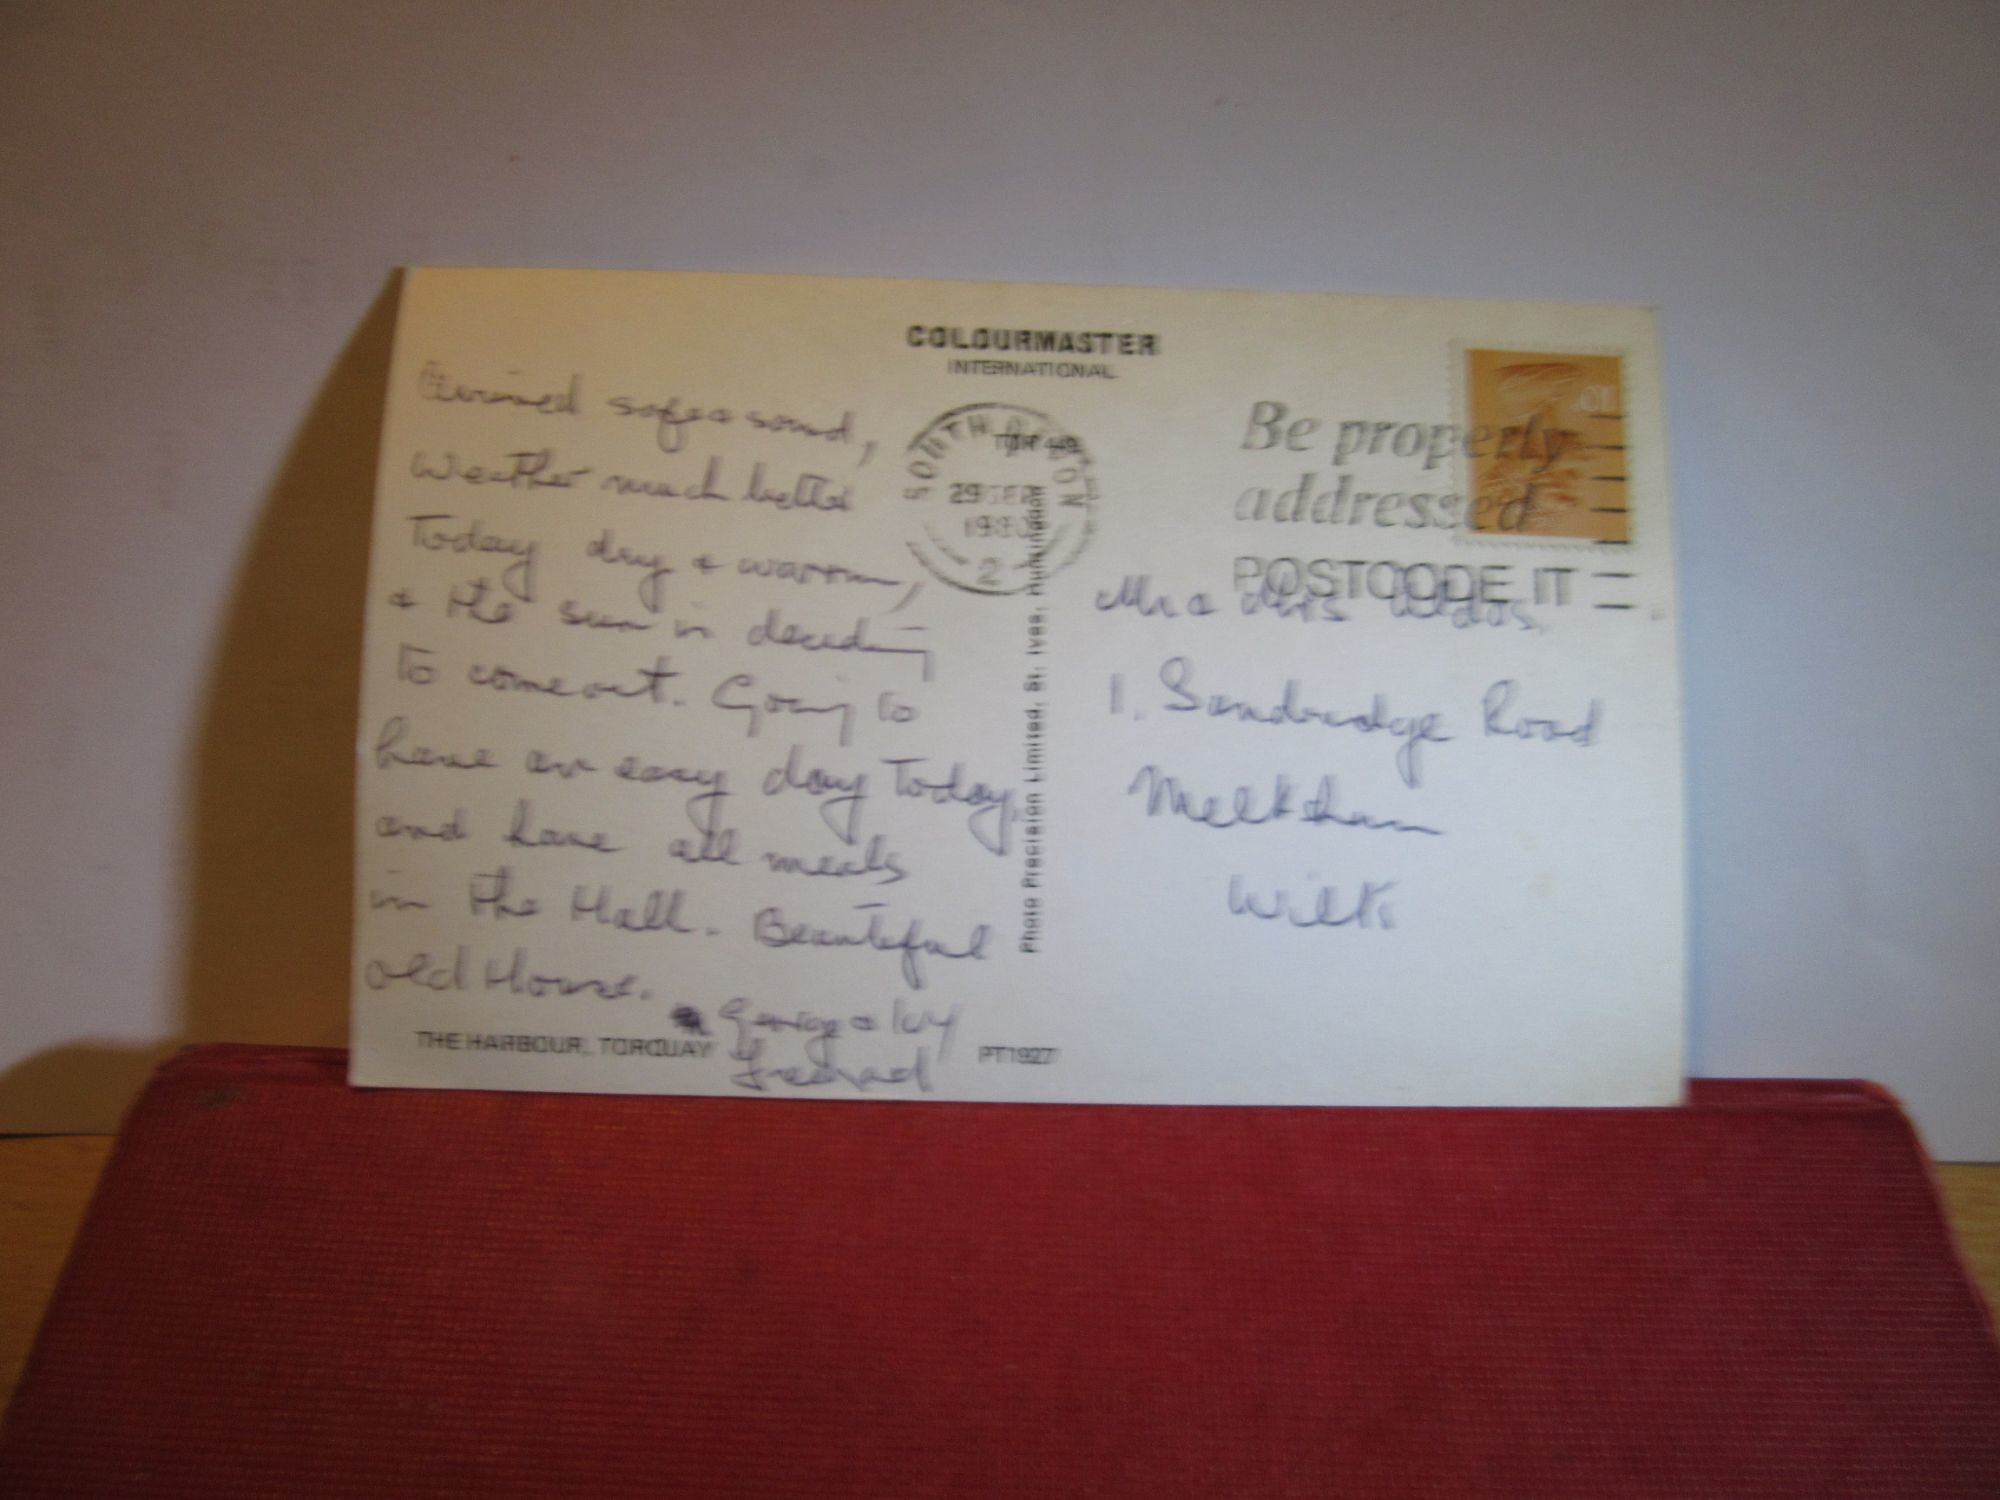 COLOURMASTER
INTERNATIONAL
Arrived safe & sound,
Weather much better
Today dry & warm,
& the sun is deciding
to come out. Going to
have an easy day Today,
and have all meals
in the Hall. Beautiful
old House.
George & Ivy
THE HARBOUR, TORQUAY
PT1927
Photo Precision Limited, St. Ives, Huntingdon
SOUTH DEVON
29 SEP
1980
2
Be properly
addressed
POSTCODE IT
Mr & Mrs
1. Sandridge Road
Melksham
Wilts